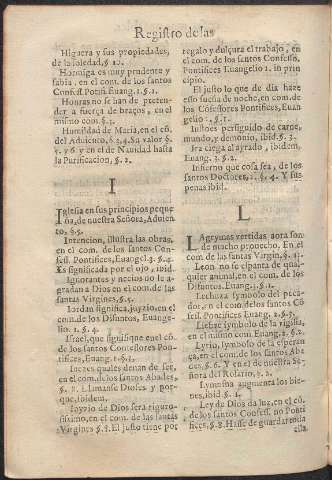 Registro de las
Higuera y sus propiedades,
de la soledad, § 10.
Hormiga es muy prudente y
sabia, en el com. de los santos
Confess. Pontif. Euang. 1. §. 1.
Honras no se han de preten-
der a fuerça de braços, en el
mismo com. §. 2.
Humildad de Maria, en el es.
del Aduiento, § 3. 4. Su valor §.
5. y 6 y en el de Nauidad hasta
la Purificacion, §. 2.
I
Iglesia en sus principios peque
ña, de nuestra Señora, Aduien
to, §. 5.
Intencion, illustra las obras,
en el com. de los santos Con-
fess. Pontifices, Euangel. 3. §. 4.
Es significada por el ojo, ibid.
Ignorantes y necios no le a-
gradan a Dios en el com. de las
santas Virgines, §. 5.
Iordan significa, juyzio, en el
com. de los Difuntos, Euange-
lio. 1. §. 4.
Israel, que signifique en el cō.
de los santos Confessores Pon-
tifices, Euang. 1. §. 1.
Iuezes quales deuan de ser,
en el com. de los santos Abades,
§. 8. Llamanse Dioses y por-
que, ibidem.
Iuyzio de Dios será riguro-
sissimo, en el com. de las santas
Virgines §. 8. El justo tiene por
regalo y dulçura el trabajo, en
el com. de los santos Confesso.
Pontifices Euangelio 1. in prin
cipio.
El justo lo que de dia haze
esso sueña de noche, en com. de
los Cōfessores Pontifices, Euan
gelio 1. §. 1.
Iustos perseguido de carne,
mundo, y demonio, ibid. §. 3.
Ira ciega al ayrado, ibidem,
Euang. 3. §. 2.
Infierno que cosa sea, de los
santos Doctores, §. 4. Y sus
penas ibid.
L
Lagrymas vertidas aora son
de mucho prouecho. En el
com. de las santas Virgin, §. 4.
Leon no se espanta de qual-
quier animal, en el com. de los
Difuntos. Euang. §. 1.
Lechuza symbolo del peca-
dor, en el com. de los santos Cō-
fess. Pontific. Euang. 2. §. 5.
Liebre symbolo de la vigilia,
en el mismo com. Euang. 2. §. 2.
Lyrio, symbolo de la esperan
ça, en el com. de los santos Aba
des, §. 6. Y en el de nuestra Se-
ñora del Rosario, §. 2.
Lymosna augmenta los bie-
nes, ibid §. 1.
Ley de Dios da luz, en el cō.
de los santos Confess. no Ponti
fices, §. 8. Hase de guardar toda
ella.